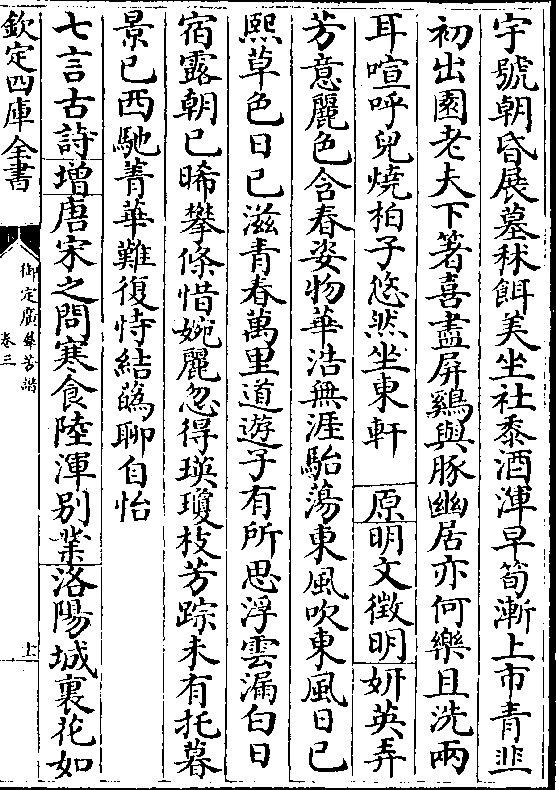 宇號朝昏展墓秫餌美坐社黍酒渾早筍漸上市青韭
初出園老夫下箸喜盡屏鷄與豚幽居亦何樂且洗兩
耳喧呼兒燒柏子悠然坐東軒　原明文徵明妍英弄
芳意麗色含春姿物華浩無涯駘蕩東風吹東風日已
熙草色日已滋青春萬里道遊子有所思浮雲漏白日
宿露朝已晞攀條惜婉麗忽得瑛瓊枝芳踪未有托暮
景已西馳菁華難復恃結䲧聊自怡
七言古詩增唐宋之問寒食陸渾別業洛陽城裏花如
欽定四庫全書
御定廣羣芳譜
卷三